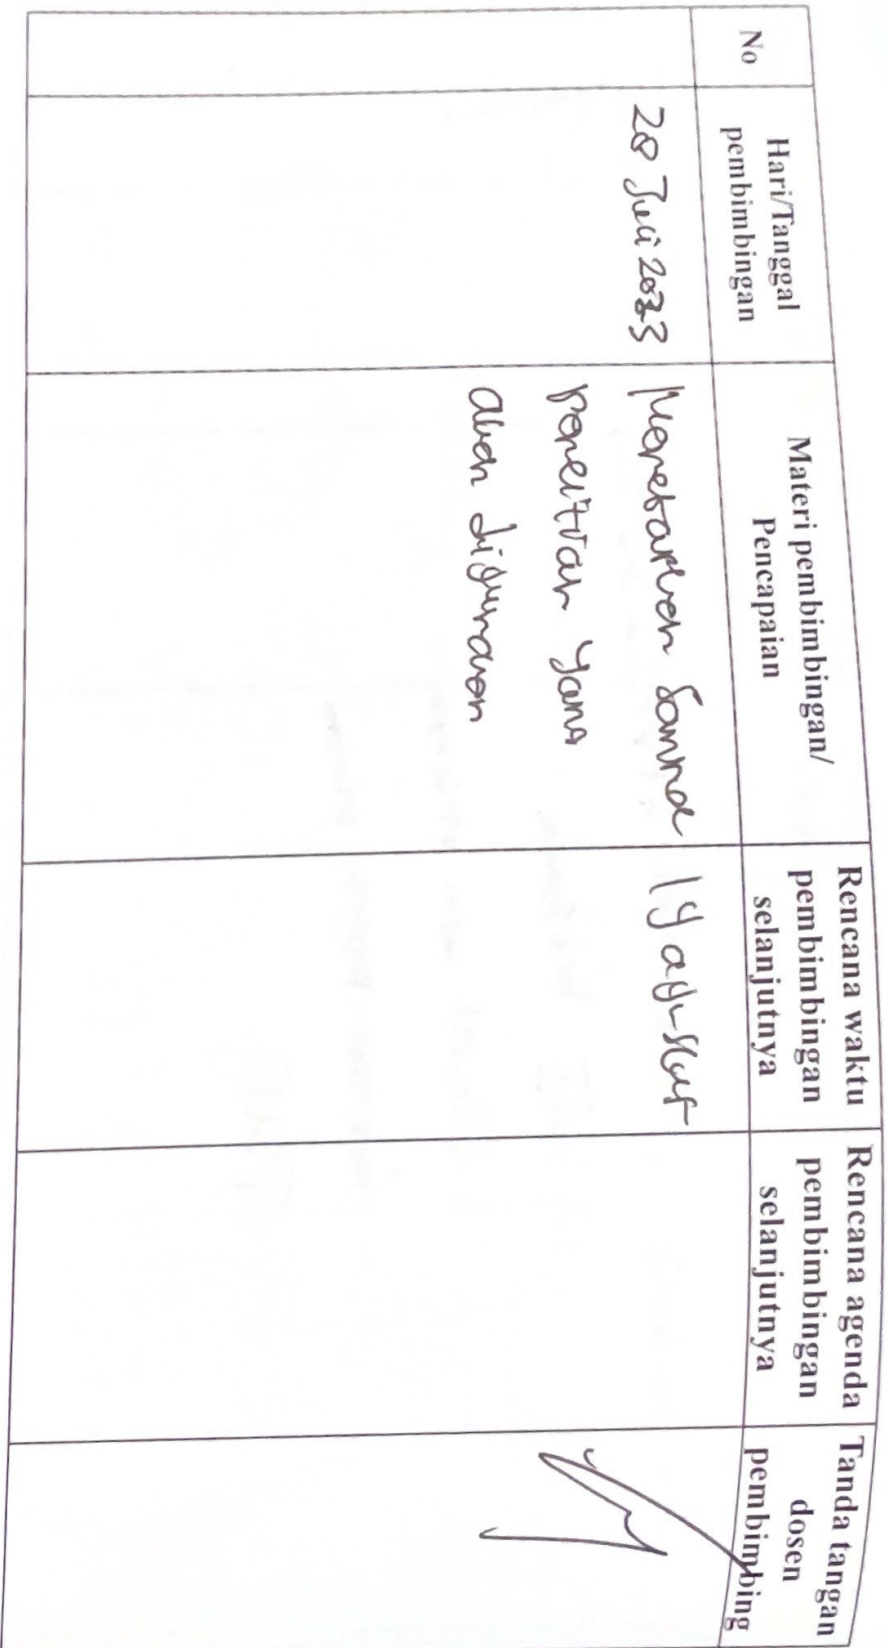 No
Hari/Tanggal
pembimbingan
Materi pembimbingan/
Pencapaian
Rencana waktu
pembimbingan
selanjutnya
Rencana agenda
pembimbingan
selanjutnya
Tanda tangan
dosen
pembimbing
28 Juli 2023
Menetapkan
penelitian yang
akan digunakan
19 agustus